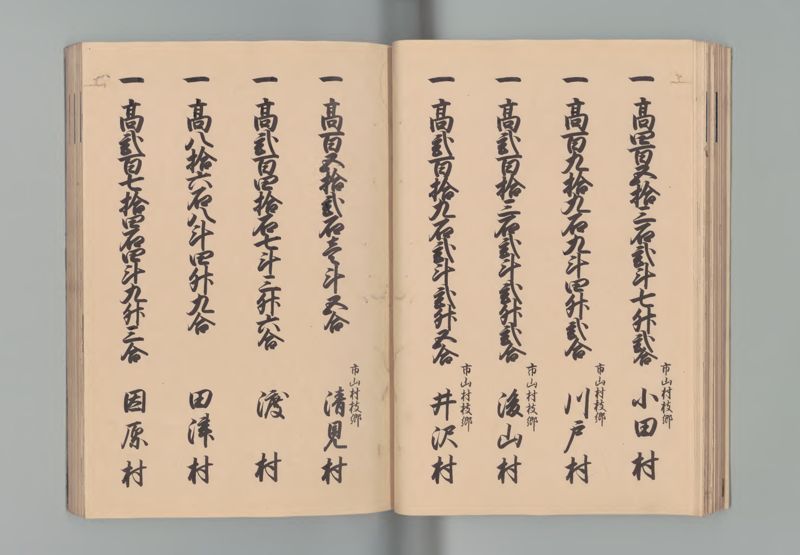 一 高四百五拾三石弐斗七升弐合 市山村枝郷 小田村
一 高百九拾九石九斗四升弐合 市山村枝郷 川戸村
一 高弐百拾三石弐斗弐升弐合 市山村枝郷 後山村
一 高弐百拾九石弐斗弐升五合 市山村枝郷 井沢村
一 高百五拾弐石壱斗五合 市山村枝郷 清見村
一 高弐百四拾石七斗三升六合 渡村
一 高八拾六石八斗四升九合 田津村
一 高弐百七拾四石四斗九升三合 因原村